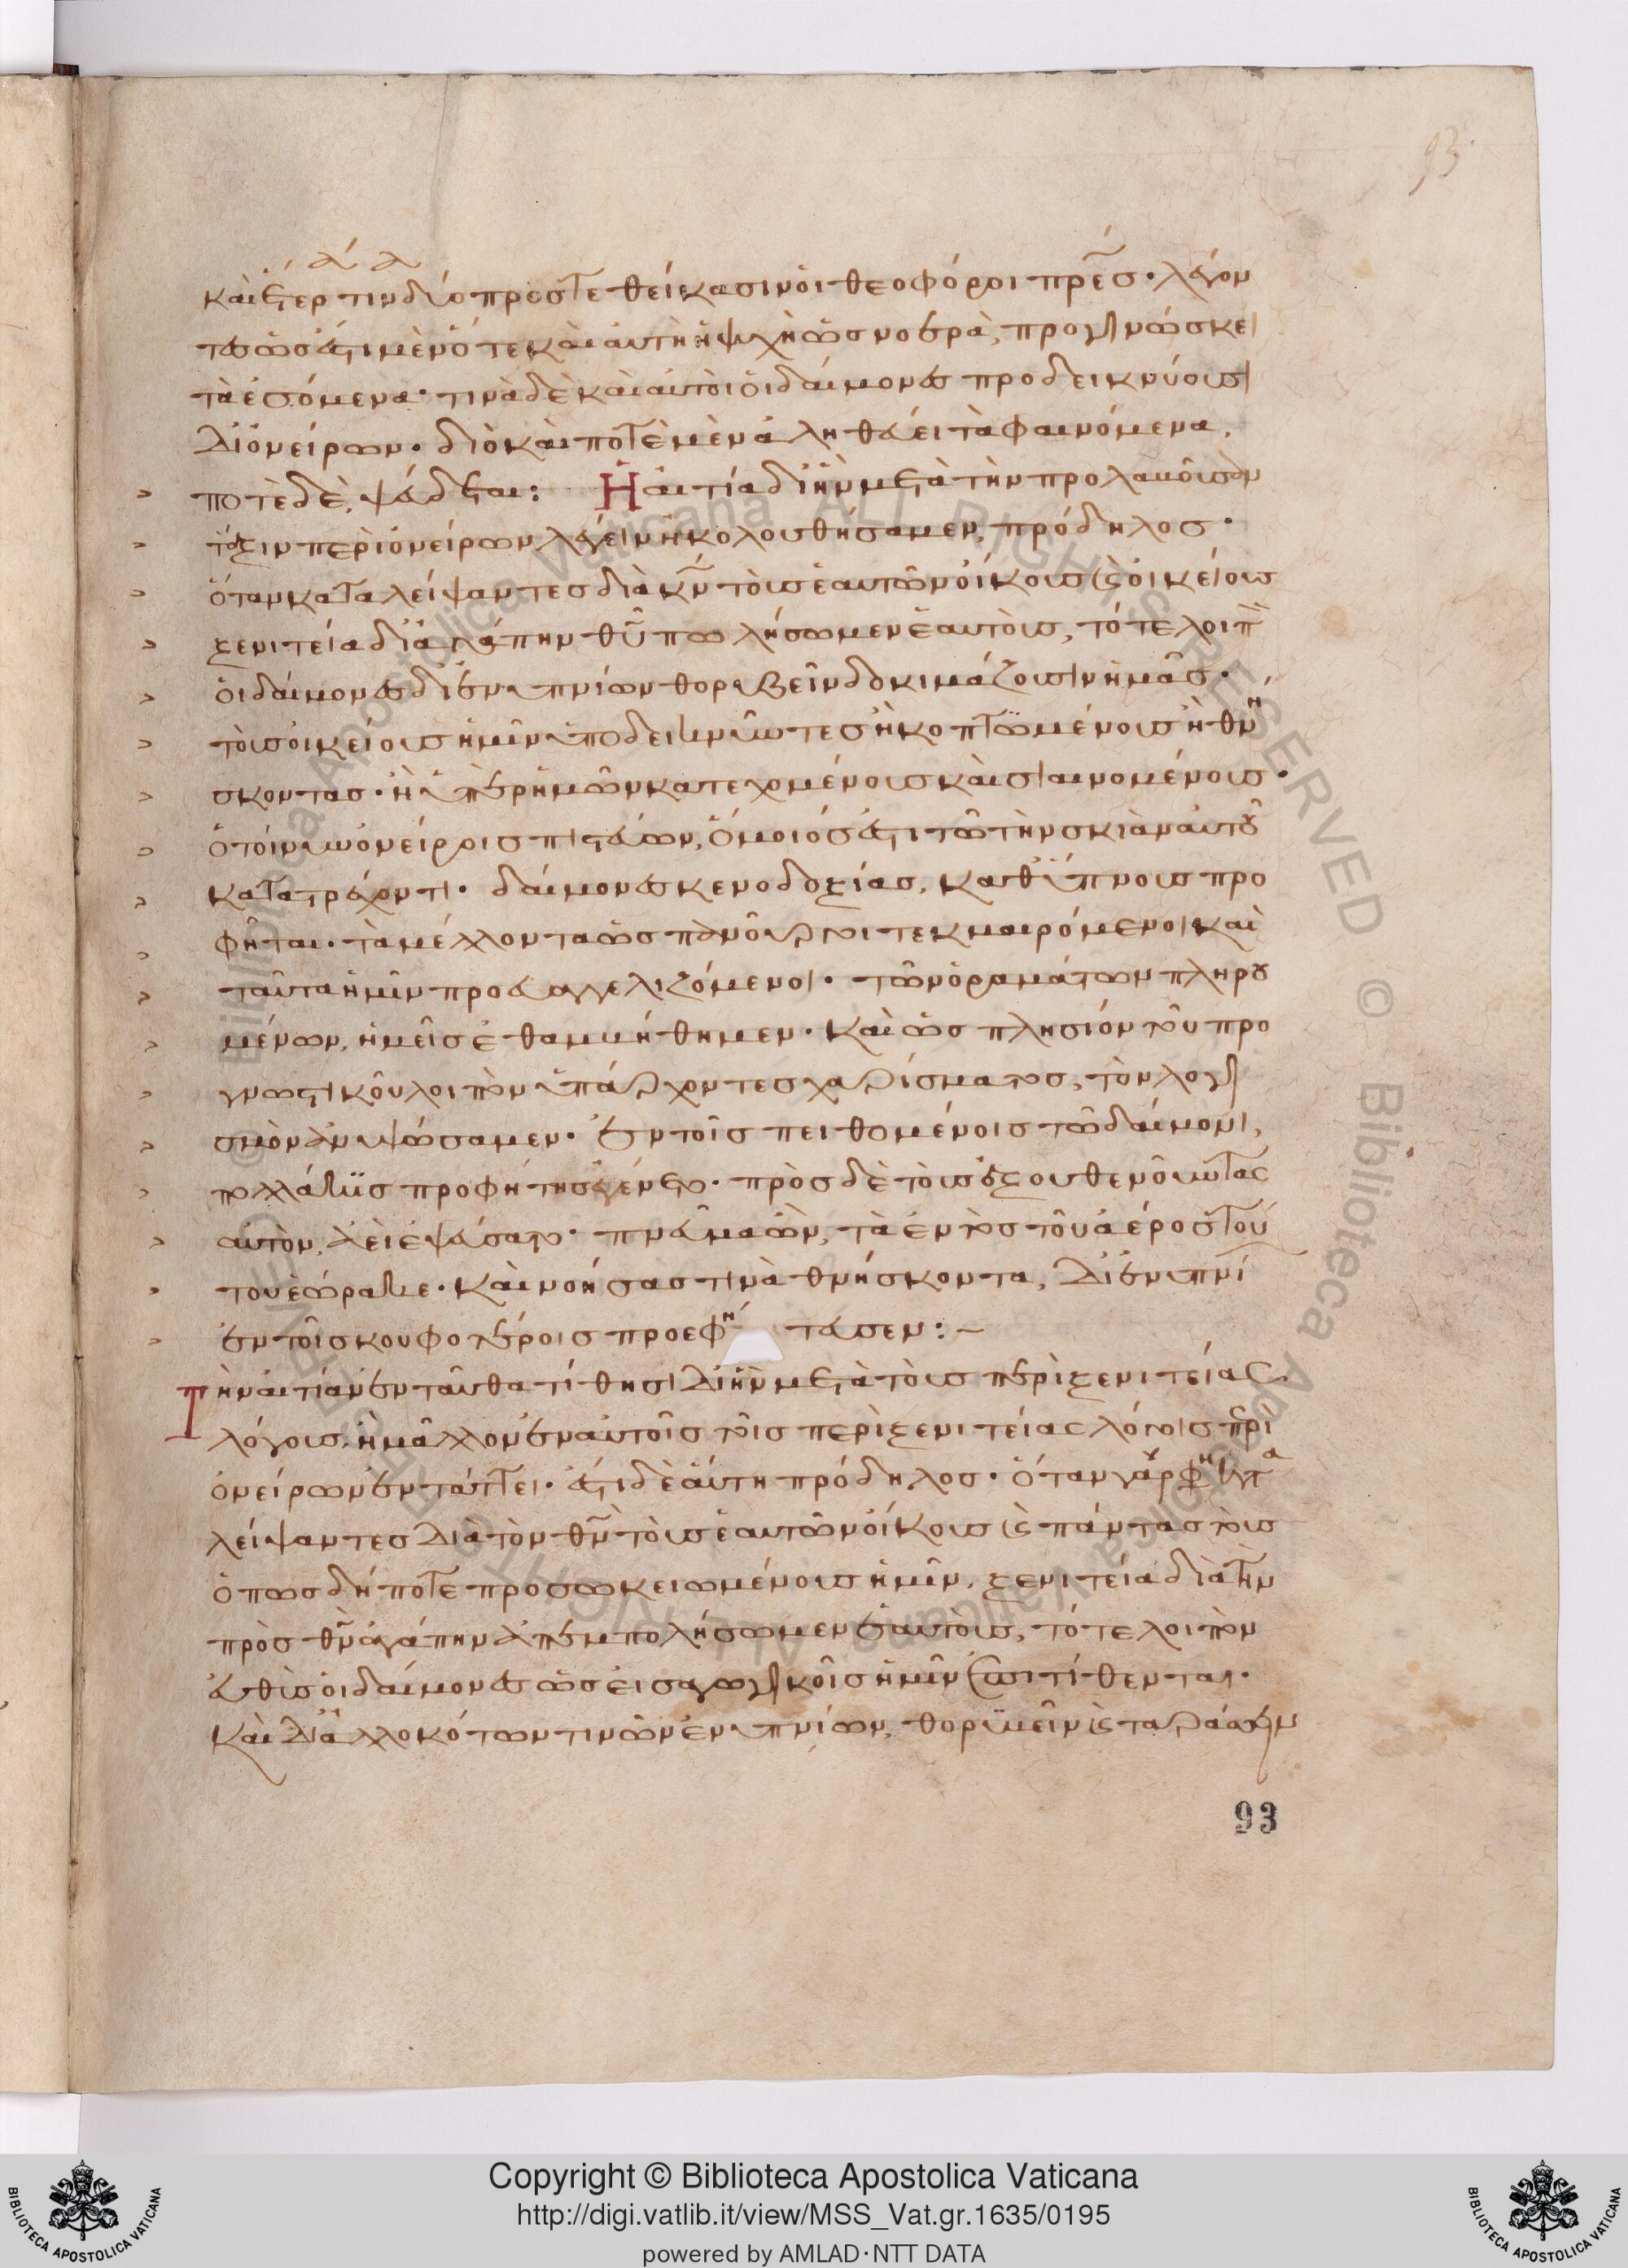 93
καὶ ἕτερά τινα δύο προστεθείκασιν οἱ θεοφόροι πρ̅ε̅ς· λέγον
τες ὡς ἔστι μὲν ὅτε καὶ αὐτὴ ἡ ψυχὴ ὡς νοερὰ, προγινώσκει
τὰ ἐσόμενα· τινὰ δὲ καὶ αὐτοὶ οἱ δαίμονες προδεικνύουσι
δι' ὀνείρων· διὸ καὶ ποτὲ μὲν ἀληθεύει τὰ φαινόμενα,
ποτὲ δὲ, ψεύδεται: Ἡ αἰτία δι' ἣν μετὰ τὴν προλαβοῦσαν
τάξιν περὶ ὀνείρων λέγειν ἠκολουθήσαμεν, πρόδηλος·
ὅταν καταλείψαντες διὰ κ̅ν̅ τοὺς ἑαυτῶν οἴκους καὶ οἰκείους
ξενιτεία δι' ἀγάπην θ̅υ̅ πωλήσωμεν ἑαυτοὺς, τότε λοιπὸν
οἱ δαίμονες δι' ἐνυπνίων θορυβεῖν δοκιμάζουσιν ἡμᾶς·
τοὺς οἰκείους ἡμῖν ὑποδεικνῦντες ἢ κοπτομένους ἢ θνή
σκοντας· ἢ ὑπὲρ ἡμῶν κατεχομένους καὶ σιαινομένους·
ὁ τοίνυν ὀνείροις πιστεύων, ὅμοιός ἐστι τῶ τὴν σκιὰν αὐτοῦ
κατατρέχοντι· δαίμονες κενοδοξίας, καθ' ὕπνους προ
φῆται· τὰ μέλλοντα ὡς πανοῦργοι τεκμαιρόμενοι καὶ
ταῦτα ἡμῖν προευαγγελιζόμενοι· τῶν ὁραμάτων πληρου
μένων, ἡμεῖς ἐθαμβήθημεν· καὶ ὡς πλησίον τοῦ προ
γνωστικοῦ λοιπὸν ὑπάρχοντες χαρίσματος, τὸν λογι
σμὸν ἀνυψώσαμεν· ἐν τοῖς πειθομένοις τῶ δαίμονι,
πολλάκις προφήτης ἐγένετο· πρὸς δὲ τοὺς ἐξουθενοῦντας
αὐτὸν, ἀεὶ ἐψεύσατο· πνεῦμα ὢν, τὰ ἐντὸς τοῦ ἀέρος τού
του ἑώρακε· καὶ νοήσας τινὰ θνήσκοντα, δι' ἐνυπνί
ἐν τοῖς κουφοτέροις προεφήτευσεν:~
Τὴν αἰτίαν ἐνταῦθα τίθησι δι' ἣν μετὰ τοὺς περὶ ξενιτείας
λόγους, ἢ μᾶλλον ἐν αὐτοῖς τοῖς περὶ ξενιτείας λόγοις περὶ
ὀνείρων ἐντάττει· ἔστι δὲ αὕτη πρόδηλος· ὅταν γάρ φησι κατα
λείψαντες διὰ τὸν θ̅ν̅ τοὺς ἑαυτῶν οἴκους καὶ πάντας τοὺς
ὁπωσδήποτε προσωκειωμένους ἡμῖν, ξενιτεία διὰ τὴν
πρὸς θ̅ν̅ ἀγάπην ἀπεμπολήσωμεν ἑαυτοὺς, τότε λοιπὸν
εὐθὺς οἱ δαίμονες ὡς εἰσαγωγικοῖς ἡμῖν ἐπιτίθενται·
καὶ δι' ἀλλοκότων τινῶν ἐνυπνίων, θορυβεῖν καὶ ταράσσειν
93
Copyright © Biblioteca Apostolica Vaticana
http://digi.vatlib.it/view/MSS_Vat.gr.1635/0195
powered by AMLAD·NTT DATA